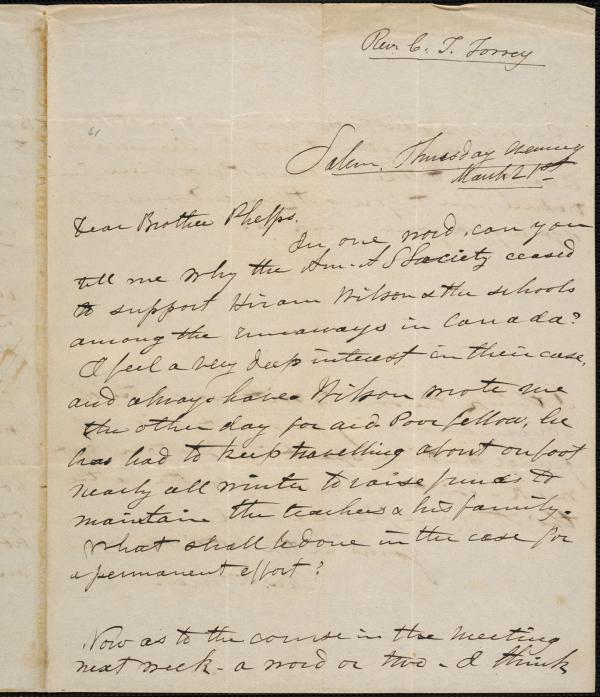 Rev. C. T. Torrey
Salem, Thursday evening
March 21st
Dear Brother Phelps.
In one word, can you
tell me why the Am. A S Society ceased
to support Hiram Wilson & the schools
among the runaways in Canada?
I feel a very deep interest in their case,
and always have. Wilson wrote me
the other day for aid. Poor fellow, he
has had to keep travelling about on foot
nearly all winter to raise funds to
maintain the teachers & his family.
What shall be done in the case for
a permanent effort?
Now as to the course in the meeting
next week - a word or two - I think